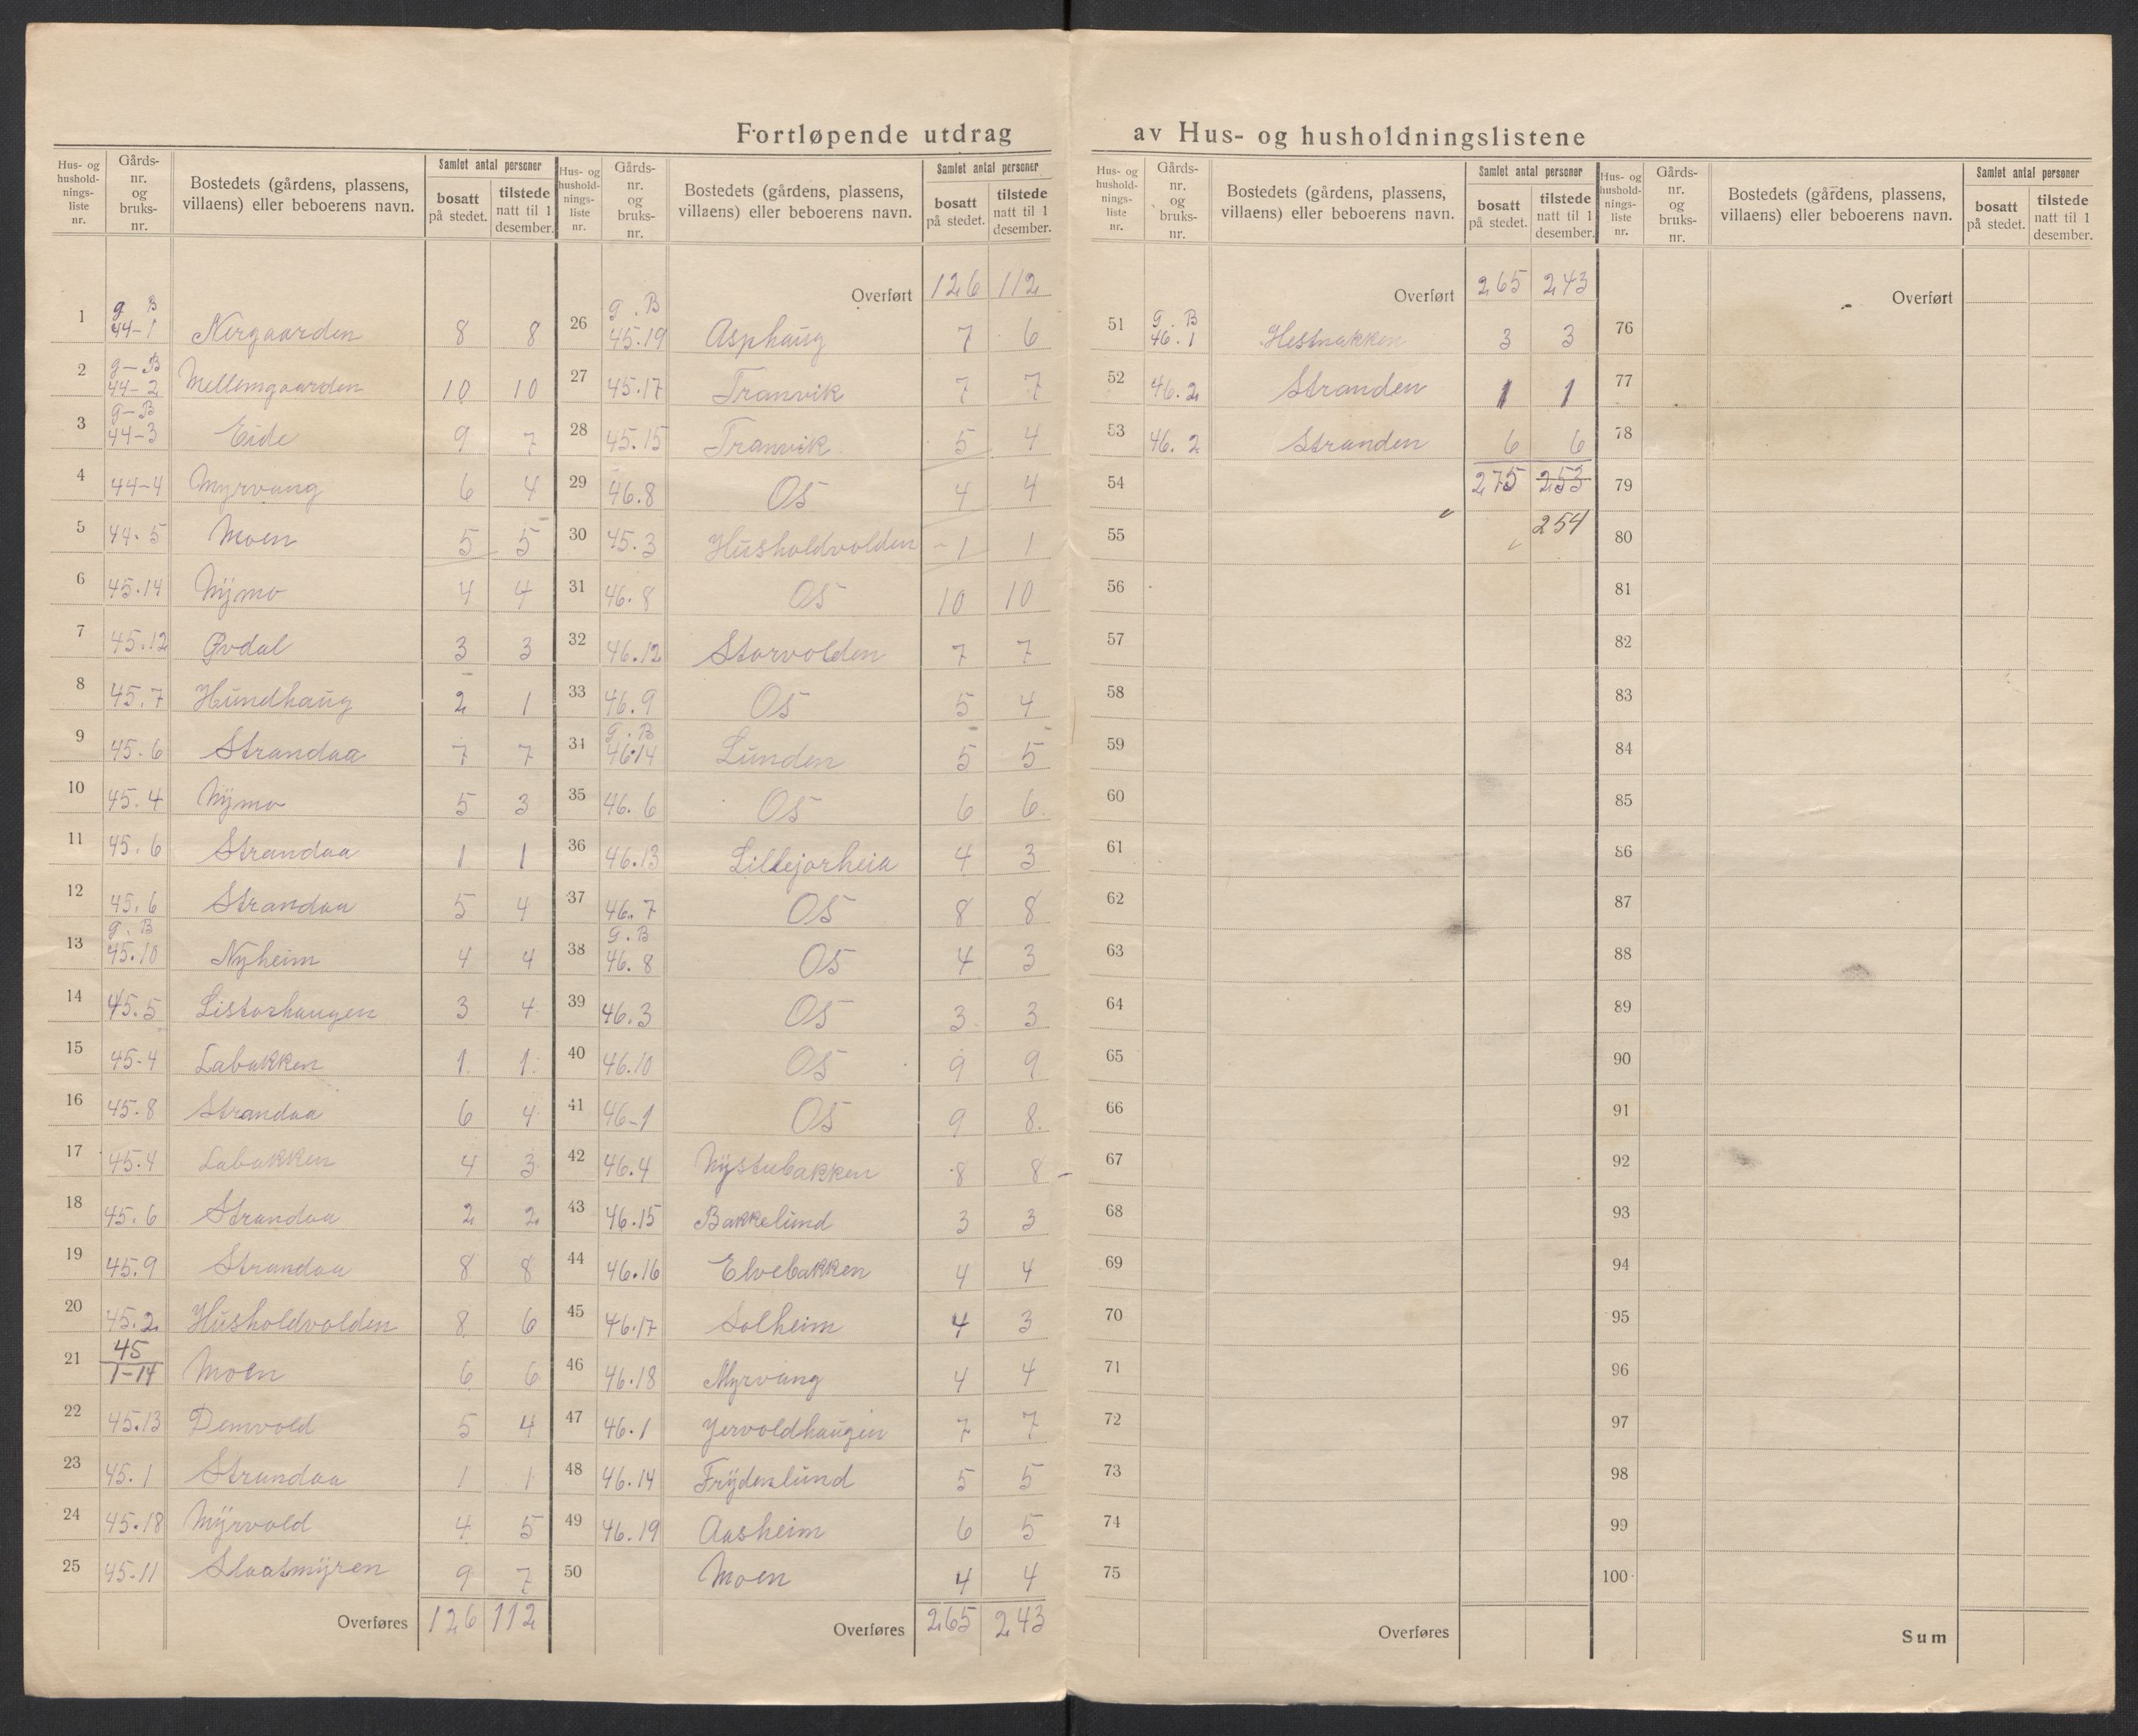 Fortløpende utdrag av Hus- og husholdningslistene
Hus- og hushold-nings-liste nr. | Gårds-nr. og bruks-nr. | Bostedets (gårdens, plassens, villaens) eller beboerens navn. | Samlet antal personer | bosatt på stedet. | tilstede natt til 1 desember.
1 g B 44-1 Nergaarden 8 8
2 g-B 44-2 Mellemgaarden 10 10
3 g-B 44-3 Eide 9 7
4 44-4 Myrvang 6 4
5 44-5 Moen 5 5
6 45.14 Nymo 4 4
7 45.12 Øvdal 3 3
8 45.7 Hundhaug 2 1
9 45.6 Strandaa 7 7
10 45.4 Nymo 5 3
11 45.6 Strandaa 1 1
12 45.6 Strandaa 5 4
13 g. B 45.10 Nyheim 4 4
14 45.5 Listorhaugen 3 4
15 45-4 Labakken 1 1
16 45.8 Strandaa 6 4
17 45.4 Labakken 4 3
18 45.6 Strandaa 2 2
19 45.9 Strandaa 8 8
20 45.2 Husholdvolden 8 6
21 45 1-14 Moen 6 6
22 45.13 Demvold 5 4
23 45.1 Strandaa 1 1
24 45.18 Myrvold 4 5
25 45-11 Slaatmyren 9 7
Overføres 126 112
Hus- og hushold-nings-liste nr. | Gårds-nr. og bruks-nr. | Bostedets (gårdens, plassens, villaens) eller beboerens navn. | Samlet antal personer | bosatt på stedet. | tilstede natt til 1 desember.
Overført 126 112
26 g. B 45.19 Asphaug 7 6
27 45.17 Tranvik 7 7
28 45.15 Tranvik 5 4
29 46.8 Os 4 4
30 45.3 Husholdvolden 1 1
31 46.8 Os 10 10
32 46.12 Storvolden 7 7
33 46.9 Os 5 4
34 g. B 46.14 Lunden 5 5
35 46.6 Os 6 6
36 46.13 Lillejorheia 4 3
37 46.7 Os 8 8
38 g. B 46.8 Os 4 3
39 46.3 Os 3 3
40 46.10 Os 9 9
41 46-1 Os 9 8
42 46.4 Nystubakken 8 8
43 46.15 Bakkelund 3 3
44 46.16 Elvebakken 4 4
45 46.17 Solheim 4 3
46 46.18 Myrvang 4 4
47 46.1 Jervoldhaugen 7 7
48 46.14 Frydenlund 5 5
49 46.19 Aasheim 6 5
50 Moen 4 4
Overføres 265 243
Hus- og hushold-nings-liste nr. | Gårds-nr. og bruks-nr. | Bostedets (gårdens, plassens, villaens) eller beboerens navn. | Samlet antal personer | bosatt på stedet. | tilstede natt til 1 desember.
Overført 265 243
51 g. B 46.1 Hestnakken 3 3
52 46.2 Stranden 1 1
53 46.2 Stranden 6 6
54 275 253
55 254
56
57
58
59
60
61
62
63
64
65
66
67
68
69
70
71
72
73
74
75
Overføres
Hus- og hushold-nings-liste nr. | Gårds-nr. og bruks-nr. | Bostedets (gårdens, plassens, villaens) eller beboerens navn. | Samlet antal personer | bosatt på stedet. | tilstede natt til 1 desember.
Overført
76
77
78
79
80
81
82
83
84
85
86
87
88
89
90
91
92
93
94
95
96
97
98
99
100
Sum